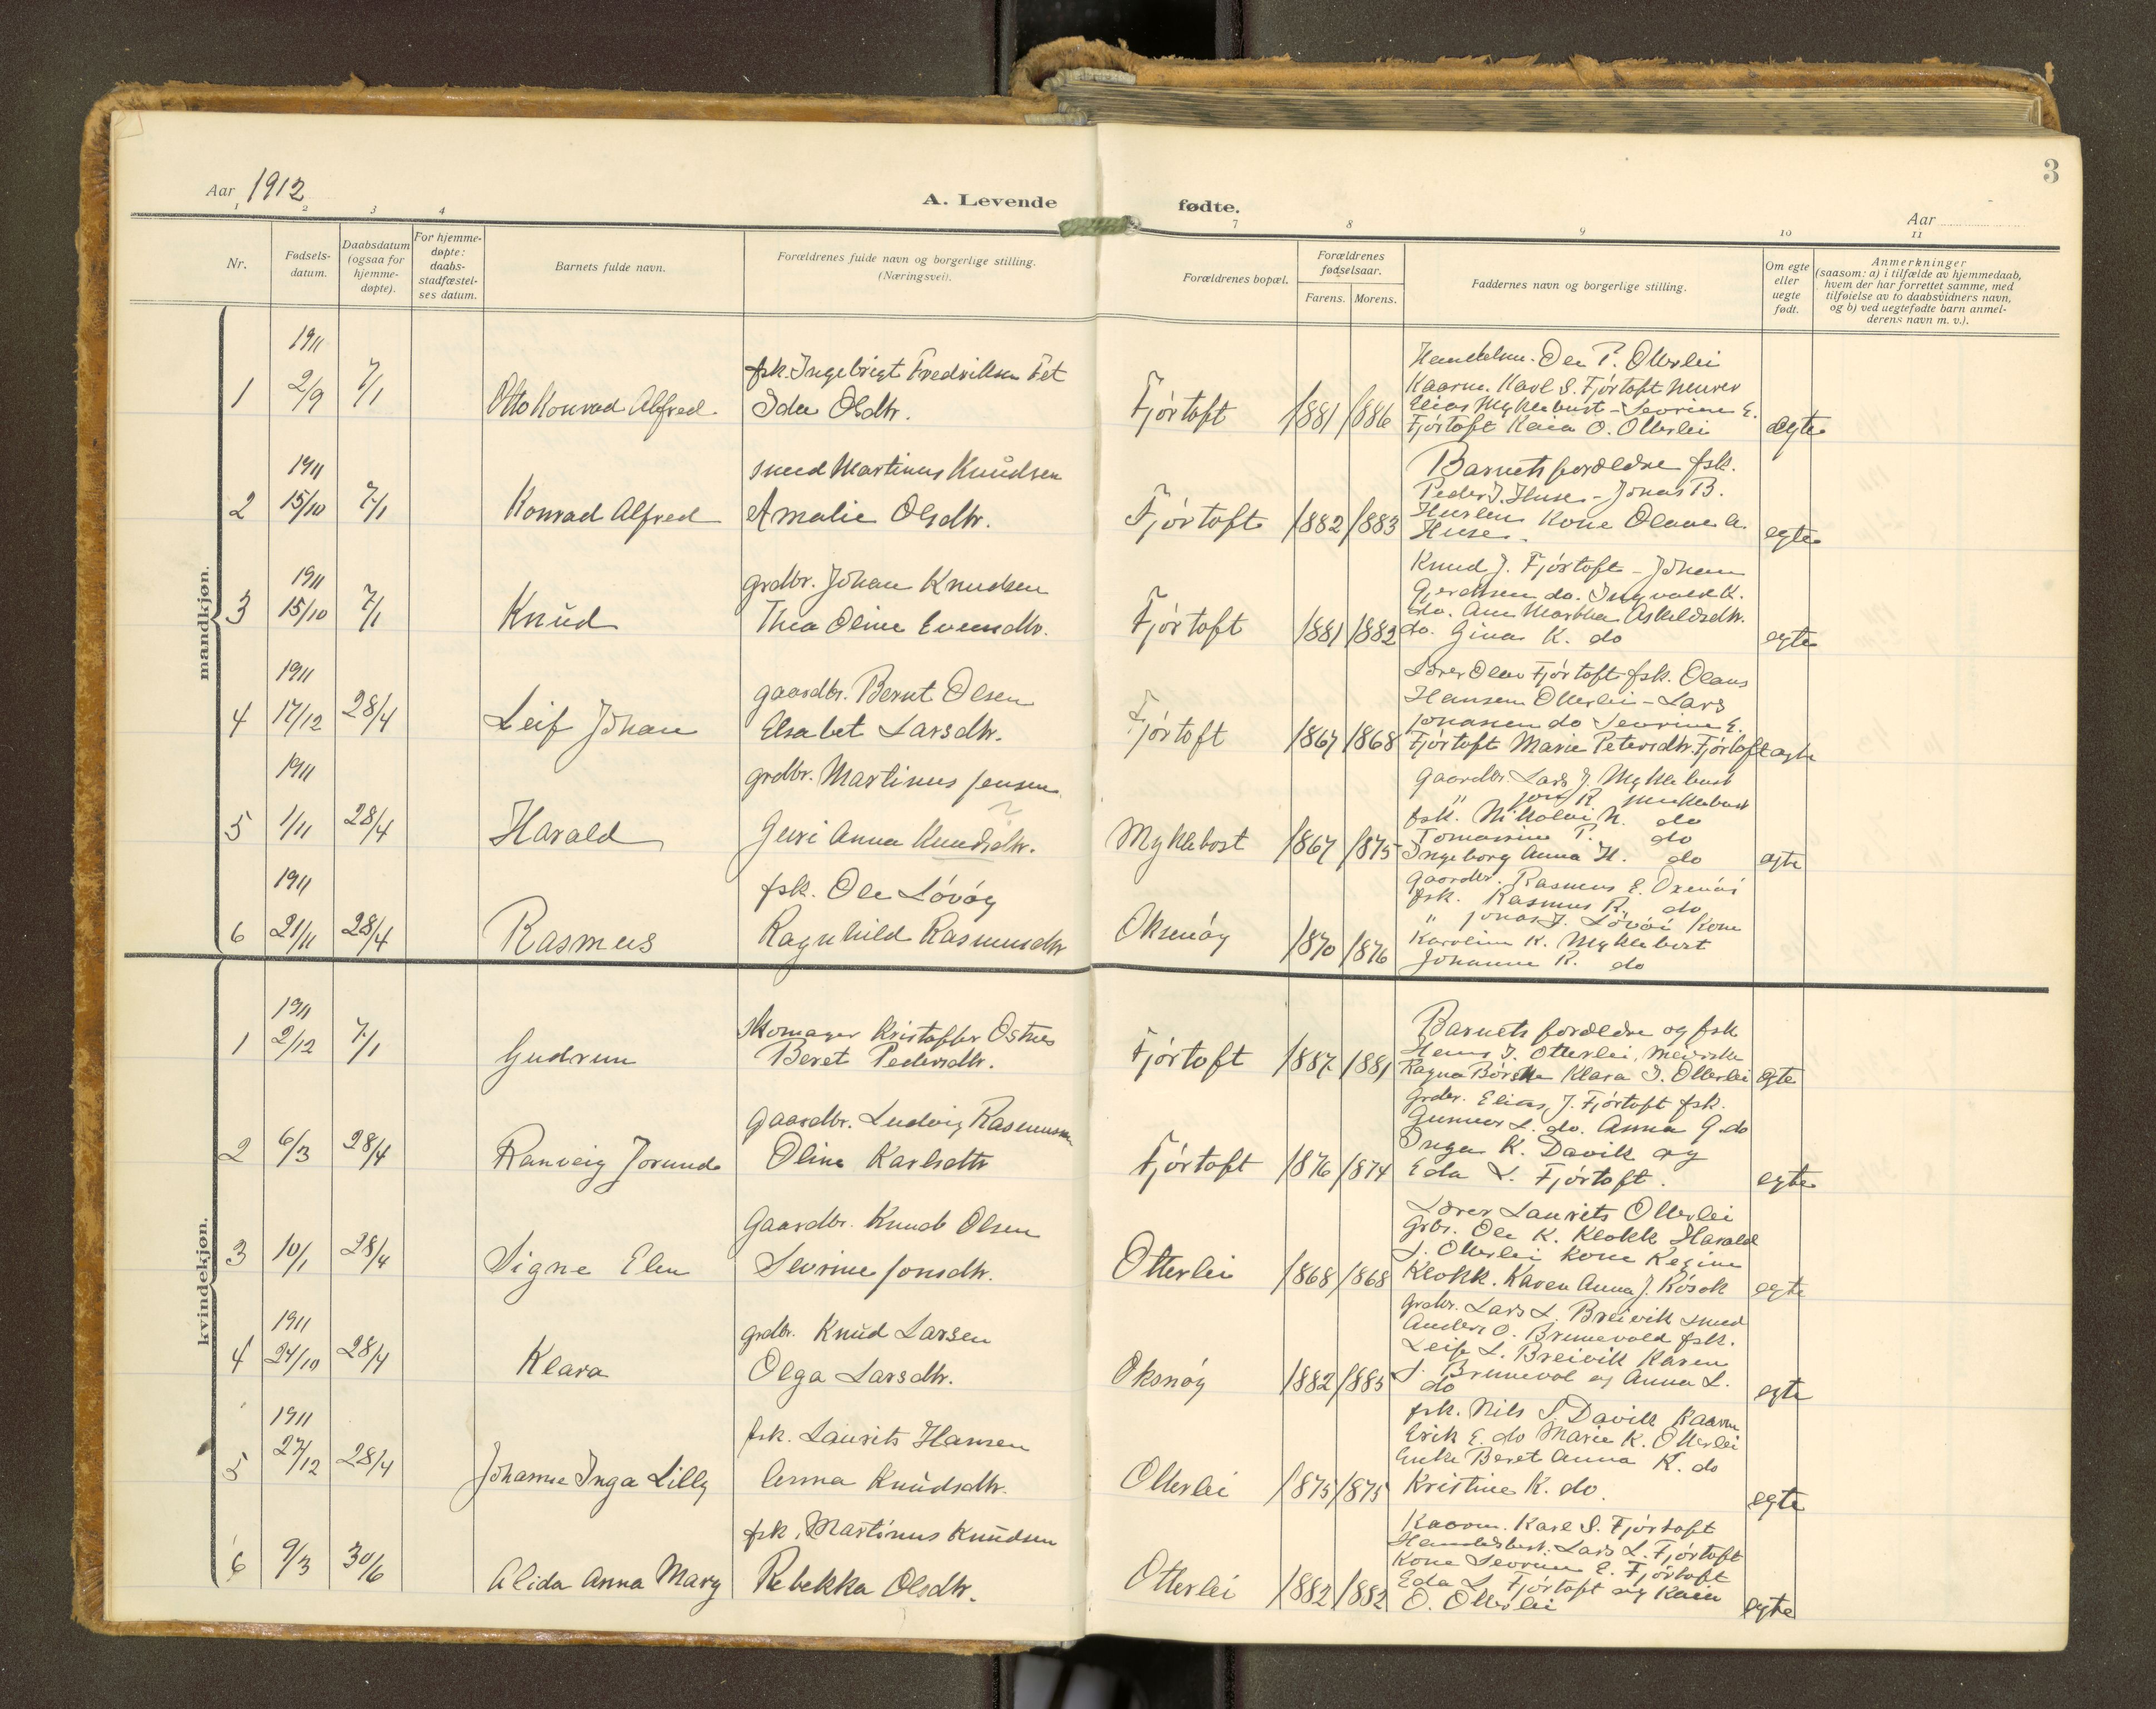 3
Aar 1912
A. Levende fødte.
Aar
1 2 3 4 7 8 9 10 11
Nr.
Fødsels-
datum.
Daabsdatum
(ogsaa for
hjemme-
døpte).
For hjemme-
døpte:
daabs-
stadfæstel-
ses datum.
Barnets fulde navn.
Forældrenes fulde navn og borgerlige stilling.
(Næringsvei).
Forældrenes bopæl.
Forældrenes
fødselsaar.
Farens. Morens.
Faddernes navn og borgerlige stilling.
Om egte
eller
uegte
født.
Anmerkninger
(saasom: a) i tilfælde av hjemmedaab,
hvem der har forrettet samme, med
tilføielse av to daabsvidners navn,
og b) ved uegtefødte barn anmel-
derens navn m. v.).
mandkjøn.
1911
1 2/9 7/1 Otto Konrad Alfred
fsk. Ingebrigt Fredriksen Fet
Ida Olsdtr.
Fjörtoft 1881 1886
Ole P. Otterlei
Karl S. Fjörtoft
Elias Myklebust - Sevrine E.
Fjörtoft Kaia O. Otterlei
egte
1911
2 15/10 7/1 Konrad Alfred
smed Martinus Knudsen
Amalie Olsdtr.
Fjörtoft 1882 1883
Barnets forældre fsk.
Peder J. Huse - Jonas B.
Kone Olave A.
Huse.
egte
1911
3 15/10 7/1 Knud
grdbr. Johan Knudsen
Thea Oline Evensdtr.
Fjörtoft 1881 1882
Knud J. Fjörtoft - Johan
do. Ingvald K.
do. Ane Martha Askeldsdtr.
do. Gina K. do
egte
1911
4 17/12 28/4 Leif Johan
gaardbr. Bernt Olsen
Elsabet Larsdtr.
Fjörtoft 1867 1868
Lærer Olav Fjörtoft fsk. Olaus
Hansen Otterlei - Lars
Jonassen do Sevrine E.
Fjörtoft Marie Petersdtr. Fjörtoft
egte
1911
5 1/11 28/4 Harald
grdbr. Martinus Jensen
Guri Anna Knudsdtr.
Myklebost 1867 1875
gaardbr. Lars J. Myklebust
" R. Myklebust
fsk. Nikolai N. do
Tomasine P. do
Ingeborg Anna H. do
egte
1911
6 21/11 28/4 Rasmus
fsk. Ole Lövöy
Ragnhild Rasmusdtr
Oksnöy 1870 1876
gaardbr. Rasmus E. Oxenöi
fsk. Rasmus R. do
" Jonas J. Lövöi Kone
Karoline K. Myklebost
Johanne R. do
kvindekjøn.
1911
1 2/12 7/1 Gudrun
skomager Kristoffer Ostnes
Beret Pedersdtr.
Fjörtoft 1887 1881
Barnets forældre og fsk
Hans J. Otterlei,
Ragna Klara J. Otterlei
egte
2 6/3 28/4 Ranveig Jorunde
gaardbr. Ludvig Rasmussen
Oline Karlsdtr
Fjörtoft 1876 1874
grdbr. Elias J. Fjörtoft fsk.
Gunnar L. do. Anna G do
Inga K. Davik og
Eda L. Fjörtoft.
egte
3 10/1 28/4 Signe Elen
Gaardbr. Knud Olsen
Sevrine Jonsdtr.
Otterlei 1868 1868
Lærer Laurits Otterlei
Grbr. Ole K. Klokk Harald
S. Otterlei Kone Regine
Klokk. Karen Anna J. Rösok
egte
1911
4 24/10 28/4 Klara
grdbr. Knud Larsen
Olga Larsdtr.
Oksnöy 1882 1885
grdbr. Lars L. Breivik smed
Anders O. Brunevold fsk.
Leif L. Breivik Karen
S. Brunevol og Anna L.
do
egte
1911
5 27/12 28/4 Johanne Inga Lilly
fsk. Laurits Hansen
Anna Knudsdtr.
Otterlei 1875 1875
fsk. Nils S Davik
Erik E. do Marie K. Otterlei
Enke Beret Anna K. do
Kristine K. do.
egte
6 9/3 30/6 Alida Anna Mary
fsk. Martinus Knudsen
Rebekka Olsdtr.
Otterlei 1882 1882
Karl S. Fjörtoft
Handelsbest. Lars L. Fjörtoft
Kone Sevrine E. Fjörtoft
Eda L Fjörtoft og Kaia
O. Otterlei
egte